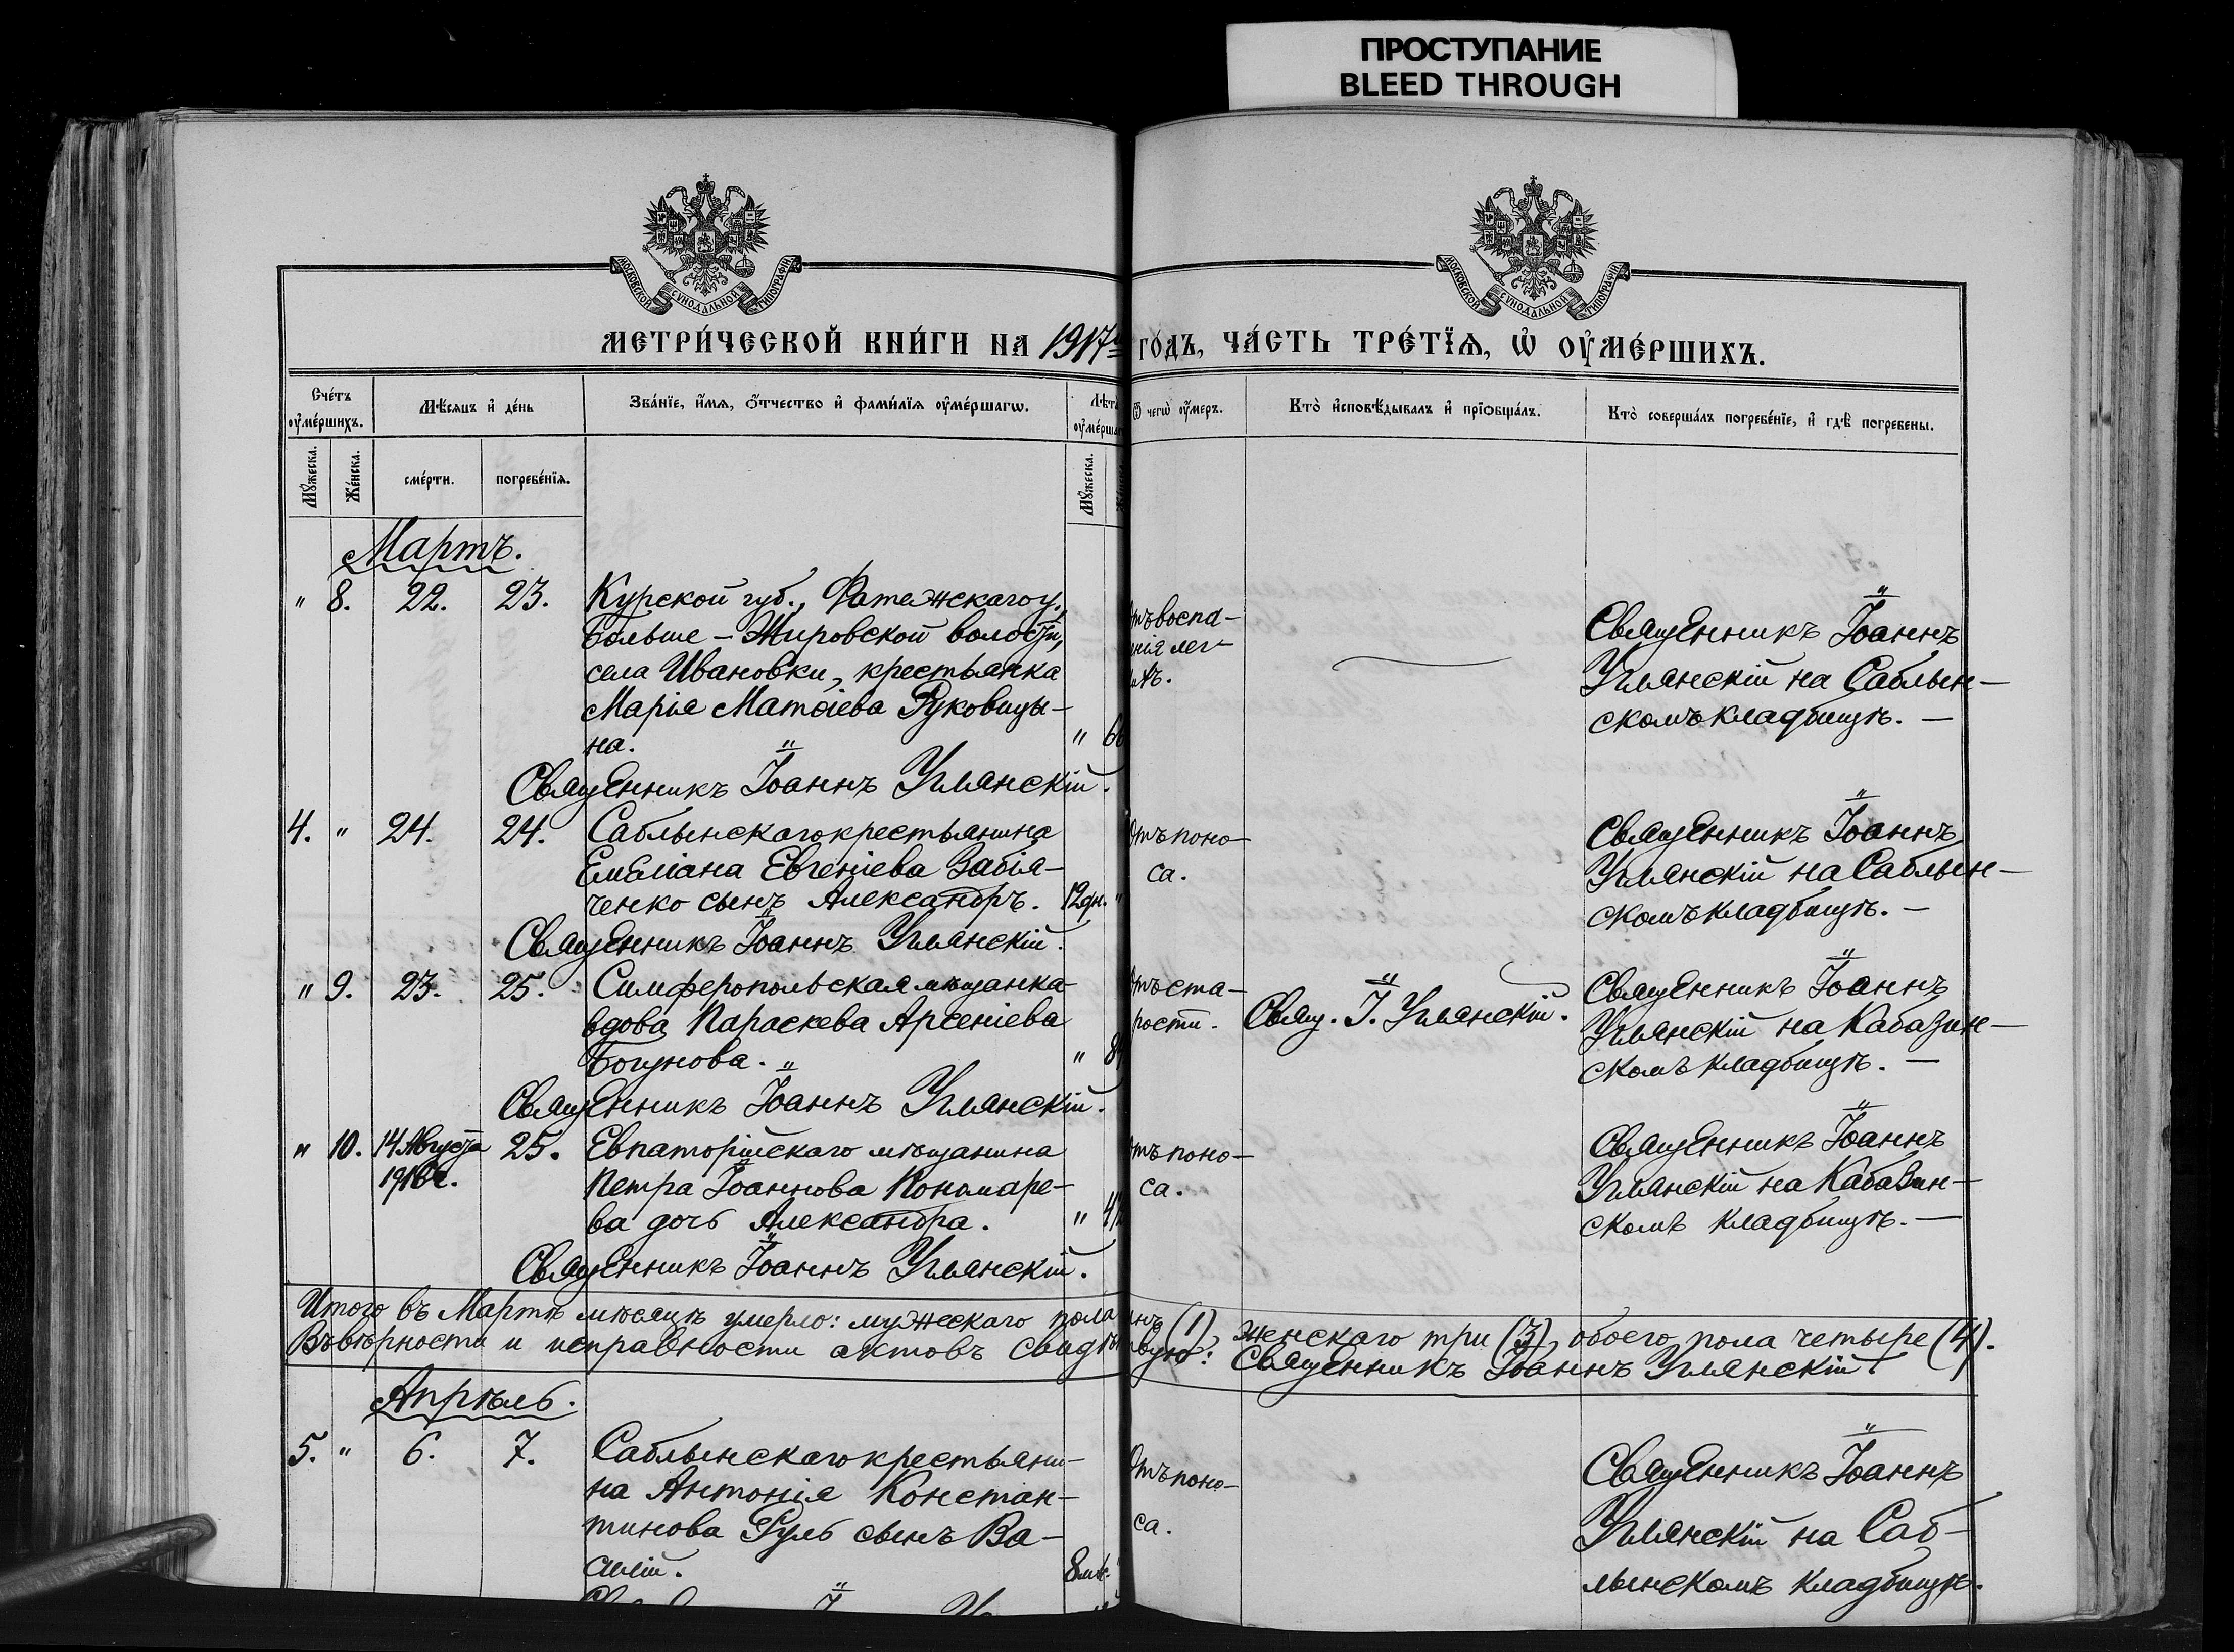 ПРОСТУПАНИЕ
BLEED THROUGH
МОСКОВСКОЙ СУНОДАЛЬНОЙ ТИПОГРАФІИ
МОСКОВСКОЙ СУНОДАЛЬНОЙ ТИПОГРАФІИ
МЕТРИ́ЧЕСКОЙ КНИ́ГИ НА 1917й го́дъ, ЧА́СТЬ ТРЕ́ТЇѦ, Ѡ҆ ОУ҆МЕ́РШИХЪ.
Сче́тъ оу҆ме́ршихъ.
Мѣ́сяцъ и҆ де́нь
Зва́нїе, и҆́мя, ѻ҆́тчество и҆ фами́лїя оу҆ме́ршагѡ.
Лѣт оу҆ме́рша
Ѿ чегѡ̀ оу҆́меръ.
Кто̀ и҆сповѣ́дывалъ и҆ прїѡбща́лъ.
Кто̀ соверша́лъ погребе́нїе, и҆ гдѣ̀ погребены.
Мꙋ́жеска.
Же́нска.
сме́рти.
погребе́нїя.
Мꙋ́жеска.
Мартъ.
" 8. 22. 23. Курской губ., Фатежскаго у.,
Больше-Жировской волости,
села Ивановки, крестьянка
Марія Матѳіева Руковицы-
на. " 66
Священникъ Іоаннъ Углянскій.
отъ воспа-
нія лег-
ихъ.
Священникъ Іоаннъ
Углянскій на Саблын-
скомъ кладбищѣ. —
4. " 24. 24. Саблынскаго крестьянина
Емеліана Евгеніева Забія-
ченко сынъ Александръ. 12 дн. "
Священникъ Іоаннъ Углянскій.
Отъ поно-
са.
Священникъ Іоаннъ
Углянскій на Саблын-
скомъ кладбищѣ. —
" 9. 23. 25. Симферопольская мѣщанка
вдова Параскева Арсеніева
Богунова. " 8
Священникъ Іоаннъ Углянскій.
отъ ста-
рости.
Свящ. І. Углянскій.
Священникъ Іоаннъ
Углянскій на Кабазин-
скомъ кладбищѣ. —
" 10. 14 Августа 25. Евпаторійскаго мѣщанина
1916 г. Петра Іоаннова Кономаре-
ва дочь Александра. "
Священникъ Іоаннъ Углянскій.
отъ поно-
са.
Священникъ Іоаннъ
Углянскій на Кабазин-
скомъ кладбищѣ. —
Итого въ Мартѣ мѣсяцѣ умерло: мужескаго пола инъ (1), женскаго три (3), обоего пола четыре (4).
Въ вѣрности и исправности актовъ свидѣ вую: Священникъ Іоаннъ Углянскій.
Апрѣль.
5. " 6. 7. Саблынскаго крестьяни-
на Антонія Констан-
тинова Гуль сынъ Ва-
силій. 8 мѣ.
Отъ поно-
са.
Священникъ Іоаннъ
Углянскій на Саб-
лынскомъ кладбищѣ.